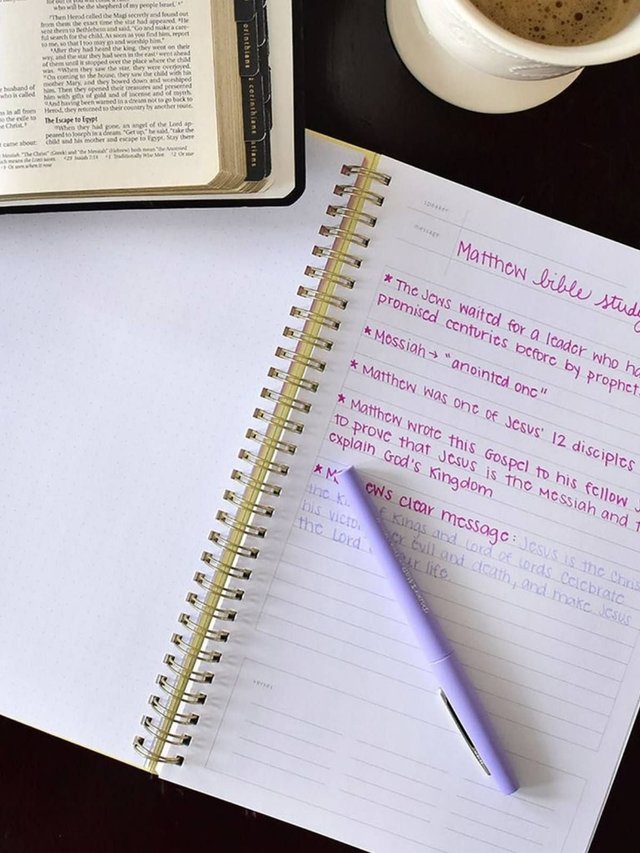 will be the shepherd of my people Israel.'"
⁷Then Herod called the Magi secretly and found out
from them the exact time the star had appeared. ⁸He
sent them to Bethlehem and said, "Go and make a care-
ful search for the child. As soon as you find him, report
to me, so that I too may go and worship him."
⁹After they had heard the king, they went on their
way, and the star they had seen in the east went ahead
of them until it stopped over the place where the child
was. ¹⁰When they saw the star, they were overjoyed.
¹¹On coming to the house, they saw the child with his
mother Mary, and they bowed down and worshiped
him. Then they opened their treasures and presented
him with gifts of gold and of incense and of myrrh.
¹²And having been warned in a dream not to go back to
Herod, they returned to their country by another route.
The Escape to Egypt
¹³When they had gone, an angel of the Lord ap-
peared to Joseph in a dream. "Get up," he said, "take the
child and his mother and escape to Egypt. Stay there
husband of
who is called
ns in all from
to the exile to
Christ.
came about:
corinthians
2 corinthians
speaker
message
Matthew bible study
* The Jews waited for a leader who ha
promised centuries before by prophet
* Messiah → "anointed one"
* Matthew was one of Jesus' 12 disciples
* Matthew wrote this Gospel to his fellow J
to prove that Jesus is the Messiah and t
explain God's Kingdom
* M ews clear message: Jesus is the Chris
the Ki of Kings and Lord of Lords. Celebrate
his victo er evil and death, and make Jesus
the Lord our life.
verses